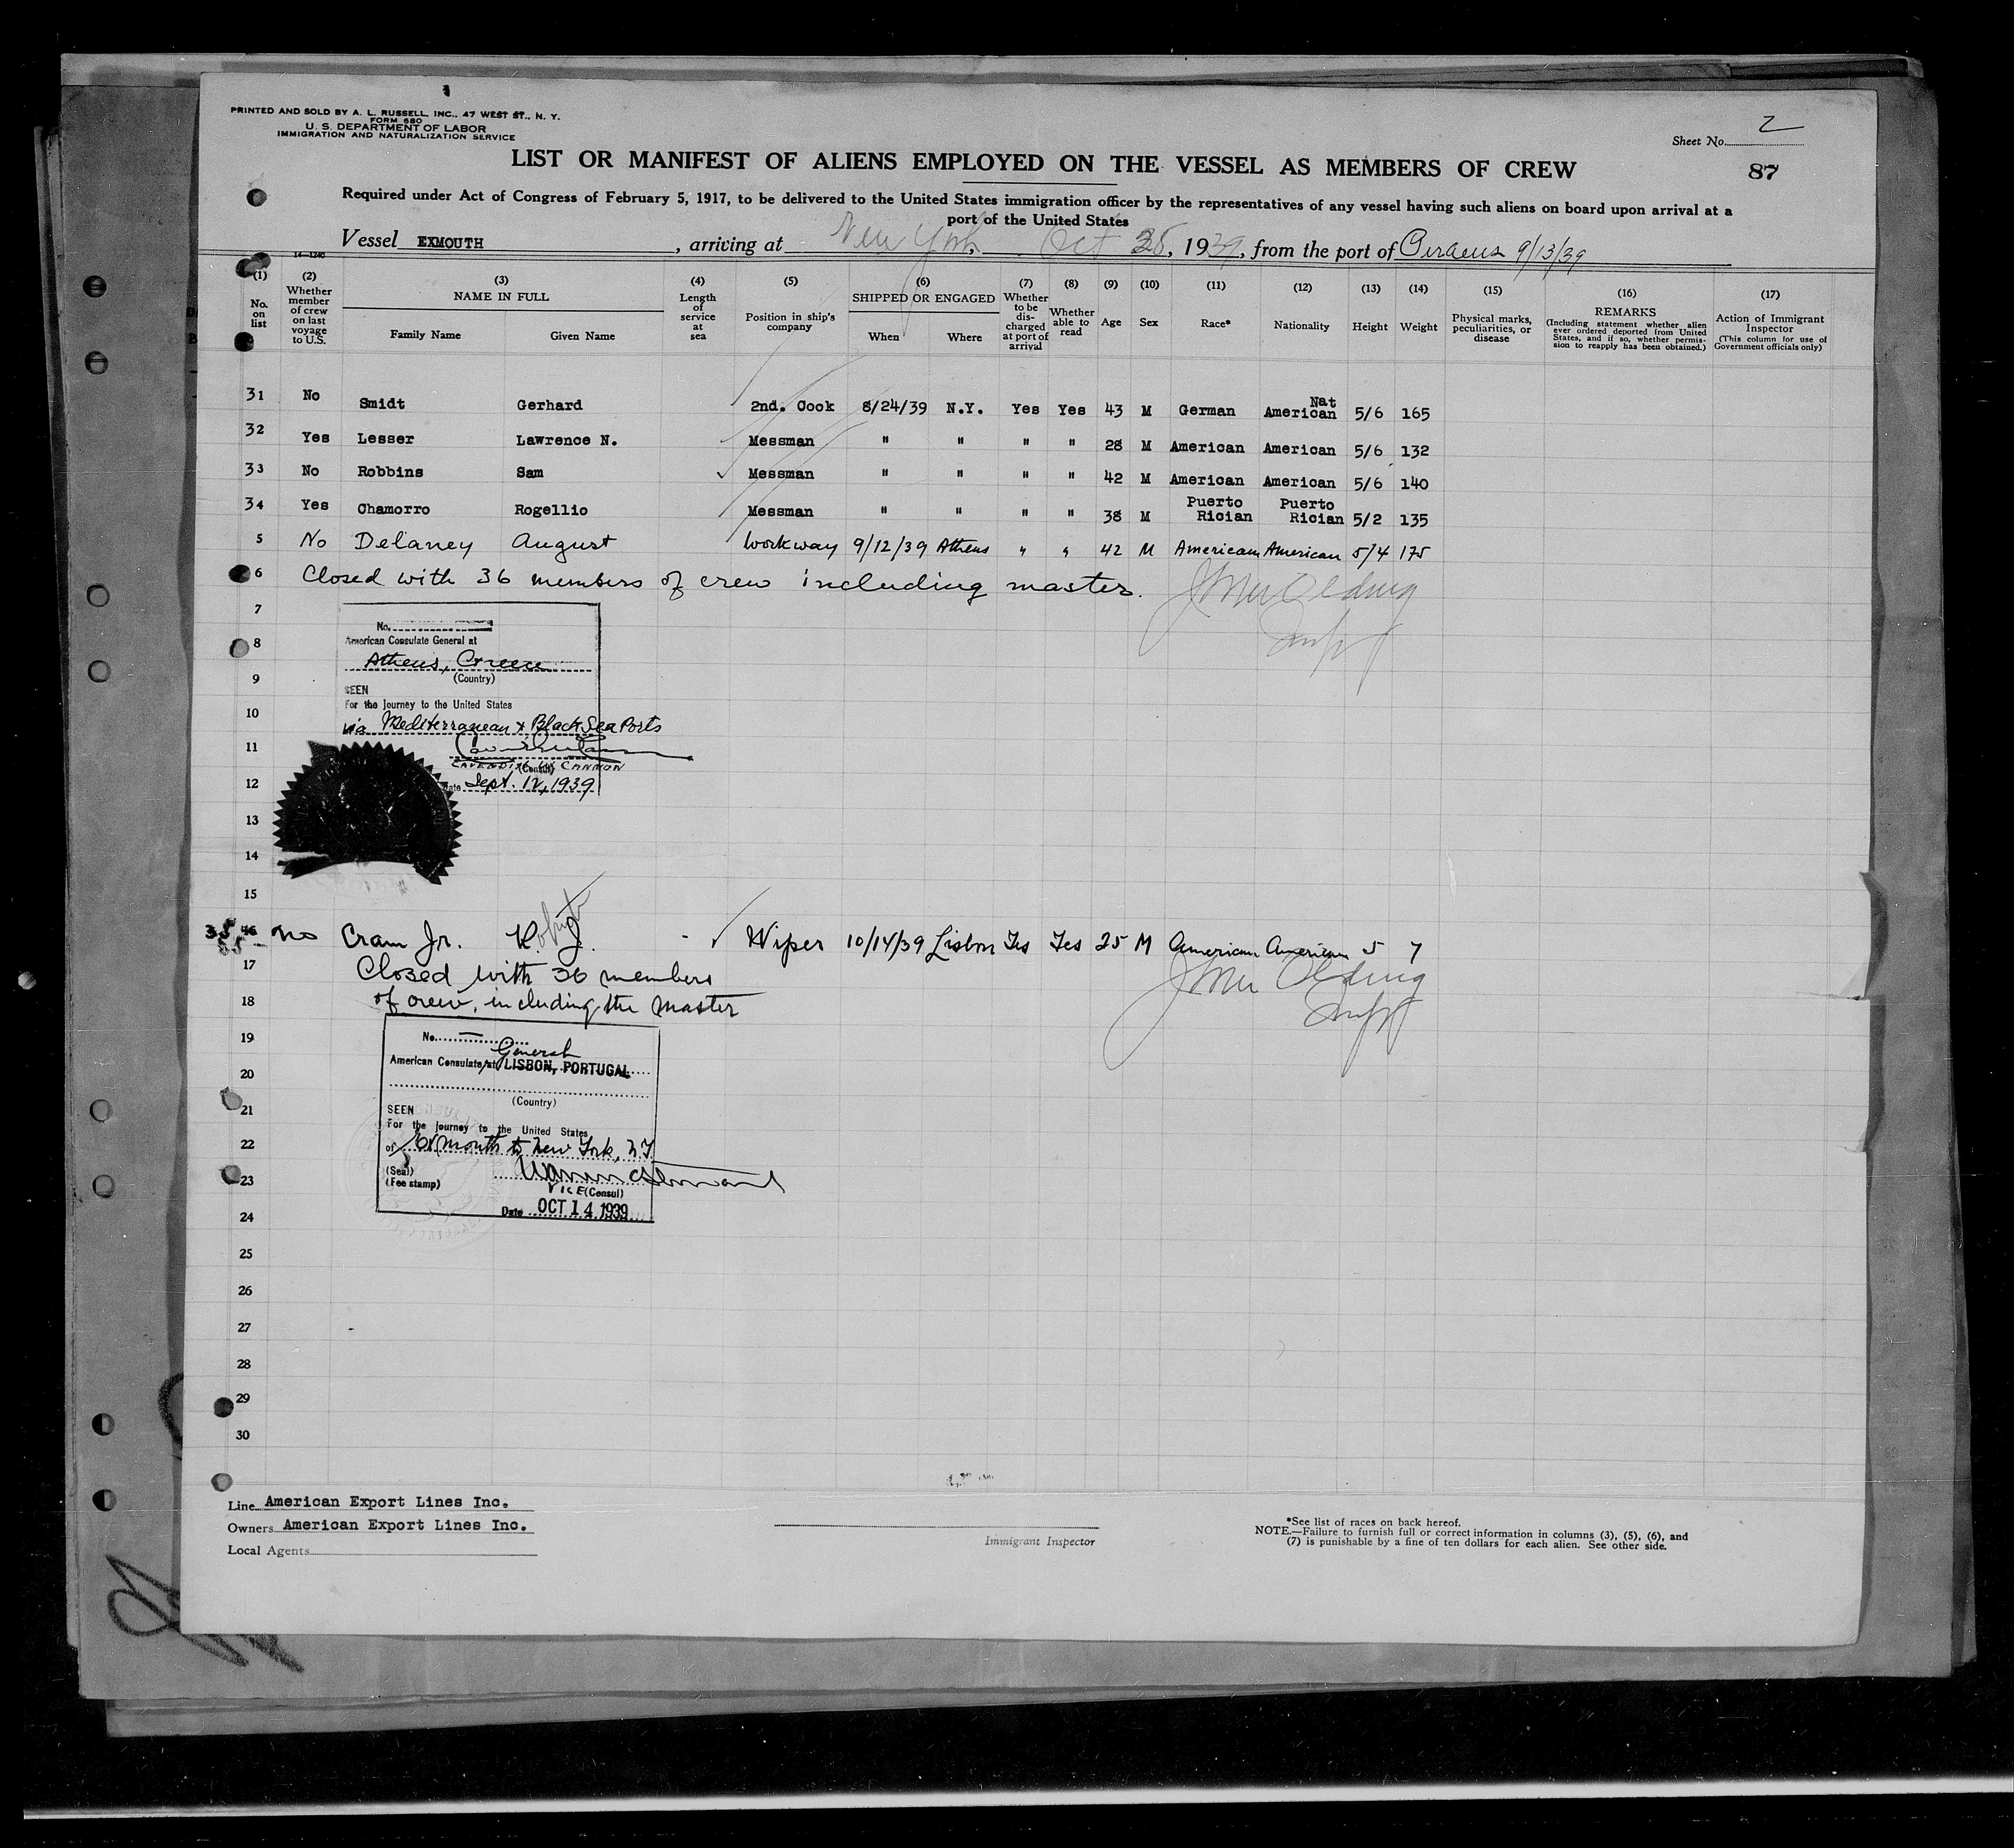 PRINTED AND SOLD BY A. L. RUSSELL, INC., 47 WEST ST., N. Y.
FORM 680
U. S. DEPARTMENT OF LABOR
IMMIGRATION AND NATURALIZATION SERVICE
Sheet No. 2
LIST OR MANIFEST OF ALIENS EMPLOYED ON THE VESSEL AS MEMBERS OF CREW
87
Required under Act of Congress of February 5, 1917, to be delivered to the United States immigration officer by the representatives of any vessel having such aliens on board upon arrival at a
port of the United States
Vessel EXMOUTH, arriving at New York, Oct 25, 1939, from the port of Piraeus 9/13/39
14-1240
(1) (2) (3) (4) (5) (6) (7) (8) (9) (10) (11) (12) (13) (14) (15) (16) (17)
No. on list
Whether member of crew on last voyage to U.S.
NAME IN FULL
Family Name
Given Name
Length of service at sea
Position in ship's company
SHIPPED OR ENGAGED
When
Where
Whether to be discharged at port of arrival
Whether able to read
Age
Sex
Race*
Nationality
Height
Weight
Physical marks, peculiarities, or disease
REMARKS
(Including statement whether alien ever ordered deported from United States, and if so, whether permission to reapply has been obtained.)
Action of Immigrant Inspector
(This column for use of Government officials only)
31 No Smidt Gerhard 2nd. Cook 8/24/39 N.Y. Yes Yes 43 M German Nat American 5/6 165
32 Yes Lesser Lawrence N. Messman " " " " 28 M American American 5/6 132
33 No Robbins Sam Messman " " " " 42 M American American 5/6 140
34 Yes Chamorro Rogellio Messman " " " " 38 M Puerto Rician Puerto Rician 5/2 135
5 No Delaney August Workway 9/12/39 Athens " " 42 M American American 5/4 175
6 Closed with 36 members of crew including master.
7
No.
8
American Consulate General at
Athens, Greece
9
(Country)
SEEN
For the journey to the United States
10
via Mediterranean & Black Sea Ports
11
CAVENDISH W. CANNON
(Consul)
12
Date Sept. 12, 1939
13
14
15
35 16 no Cram Jr. R. J. Wiper 10/14/39 Lisbon Yes Yes 25 M American American 5 7
17 Closed with 36 members
18 of crew, including the master
19
No.
General
American Consulate at LISBON, PORTUGAL
20
(Country)
21
SEEN
For the journey to the United States
22
of Exmouth to New York, N.Y.
(Seal)
23
(Fee stamp)
VICE (Consul)
Date OCT 14 1939
24
25
26
27
28
29
30
Line American Export Lines Inc.
Owners American Export Lines Inc.
Local Agents
Immigrant Inspector
*See list of races on back hereof.
NOTE.—Failure to furnish full or correct information in columns (3), (5), (6), and
(7) is punishable by a fine of ten dollars for each alien. See other side.